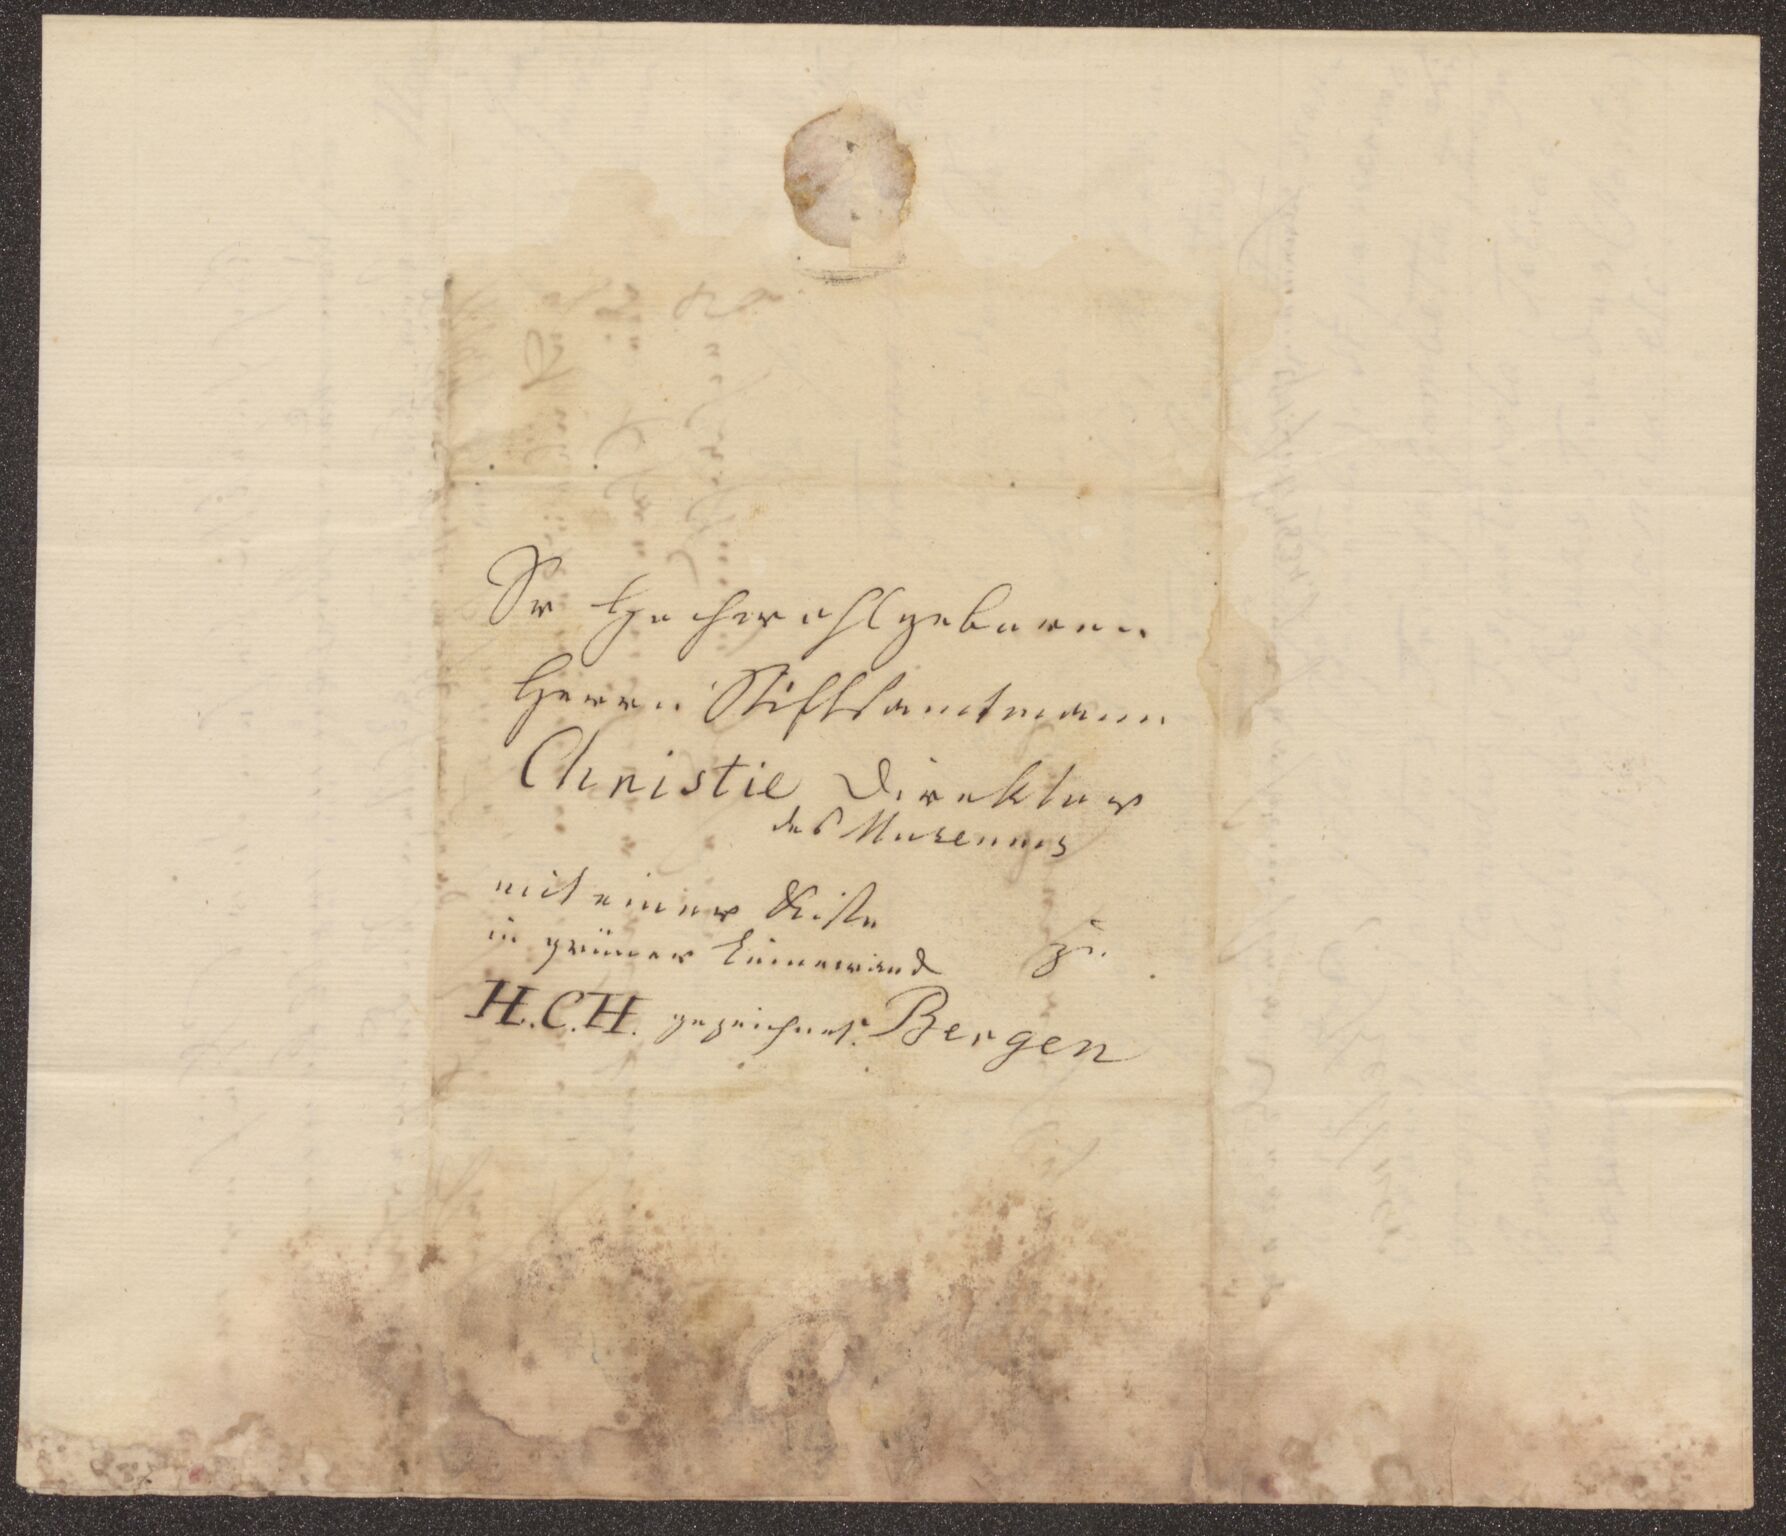 Sr Hochwohlgeboren
Herrn Stiftsamtmann
Christie Direktor
des Museums
mit einer Kiste
in grüner Leinewand zu
H.C.H. gezeichnet. Bergen